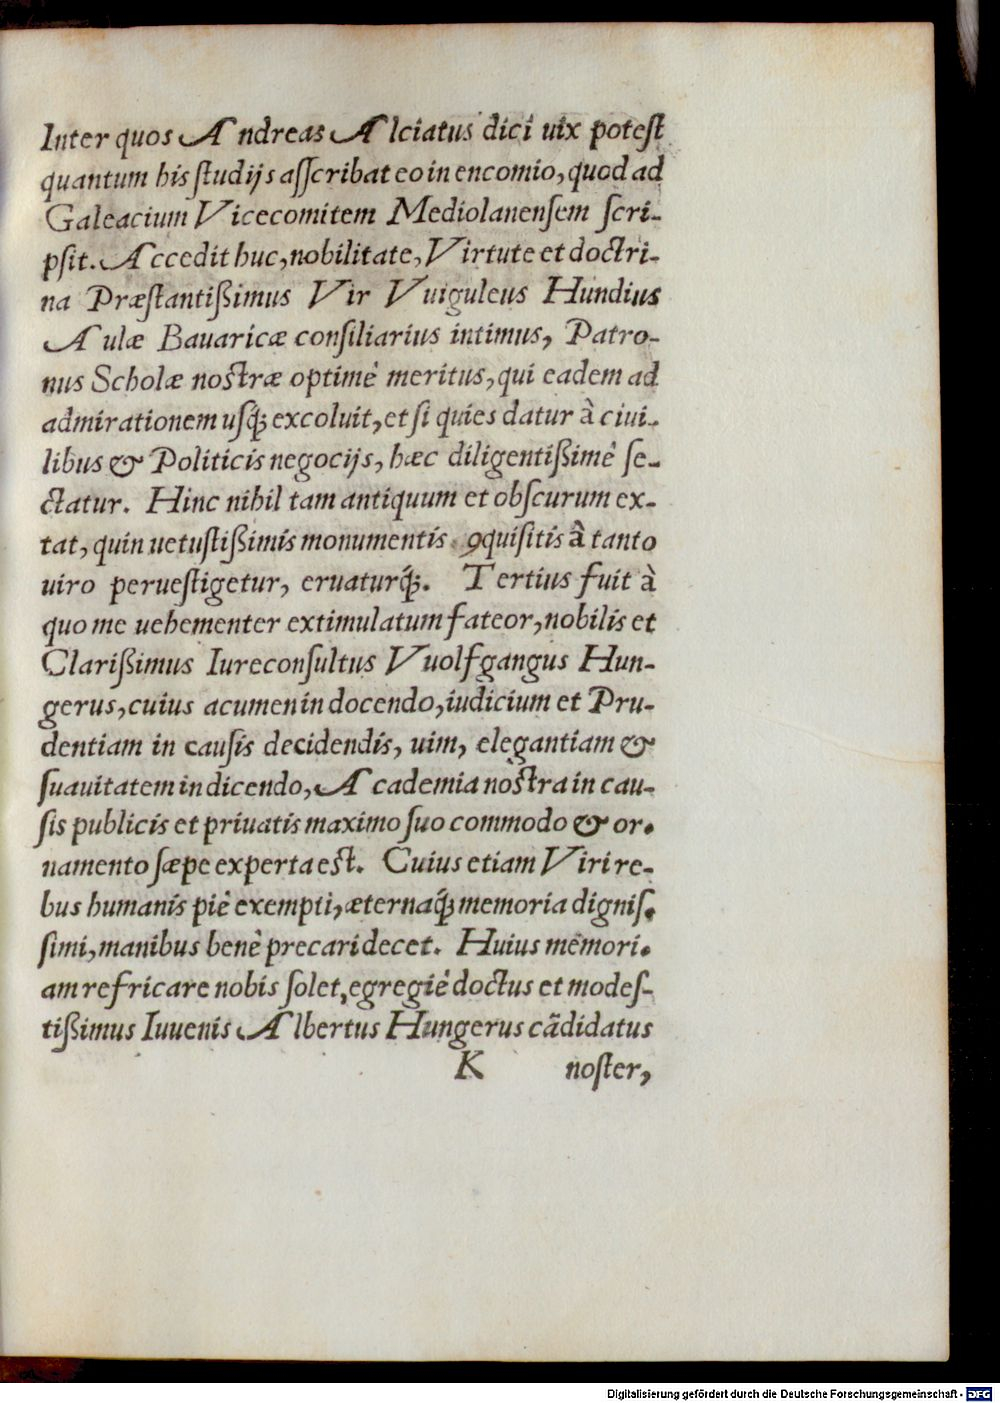 Inter quos Andreas Alciatus dici uix poteſt
quantum his ſtudijs aſſcribat eo in encomio, quod ad
Galeacium Vicecomitem Mediolanenſem ſcri-
pſit. Accedit huc, nobilitate, Virtute et doctri-
na Præſtantißimus Vir Vuiguleus Hundius
Aulæ Bauaricæ conſiliarius intimus, Patro-
nus Scholæ noſtræ optimè meritus, qui eadem ad
admirationem uſq́; excoluit, et ſi quies datur à ciui-
libus & Politicis negocijs, hæc diligentißimè ſe-
ctatur. Hinc nihil tam antiquum et obſcurum ex-
tat, quin uetuſtißimis monumentis ꝯquiſitis à tanto
uiro perueſtigetur, eruaturq́;. Tertius fuit à
quo me uehementer extimulatum fateor, nobilis et
Clarißimus Iureconſultus Vuolfgangus Hun-
gerus, cuius acumen in docendo, iudicium et Pru-
dentiam in cauſis decidendis, uim, elegantiam &
ſuauitatem in dicendo, Academia noſtra in cau-
ſis publicis et priuatis maximo ſuo commodo & or-
namento ſæpe experta eſt. Cuius etiam Viri re-
bus humanis piè exempti, æternaq́; memoria digniſ-
ſimi, manibus benè precari decet. Huius memori-
am refricare nobis ſolet, egregiè doctus et modeſ-
tißimus Iuuenis Albertus Hungerus cãdidatus
K noſter,
Digitalisierung gefördert durch die Deutsche Forschungsgemeinschaft - DFG